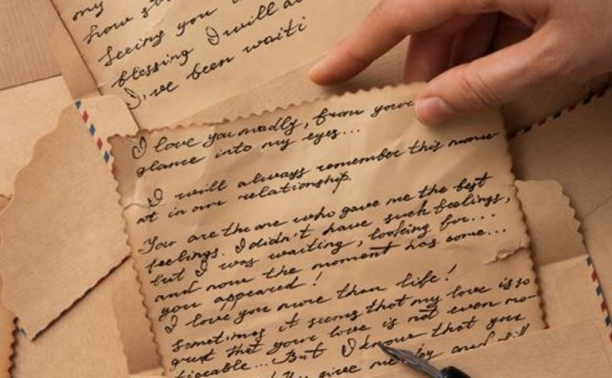 my
how s
Seeing you
blessing I will a
I've been waiti
I love you madly, from your
glance into my eyes...
I will always remember this mome
at in our relationship.
You are the one who gave me the best
feelings. I didn't have such feelings,
but I was waiting, looking for...
and now the moment has come...
you appeared!
I love you more than life!
Sometimes it seems that my love is so
great that your love is not even no-
ticeable... But I know that you
give me joy and